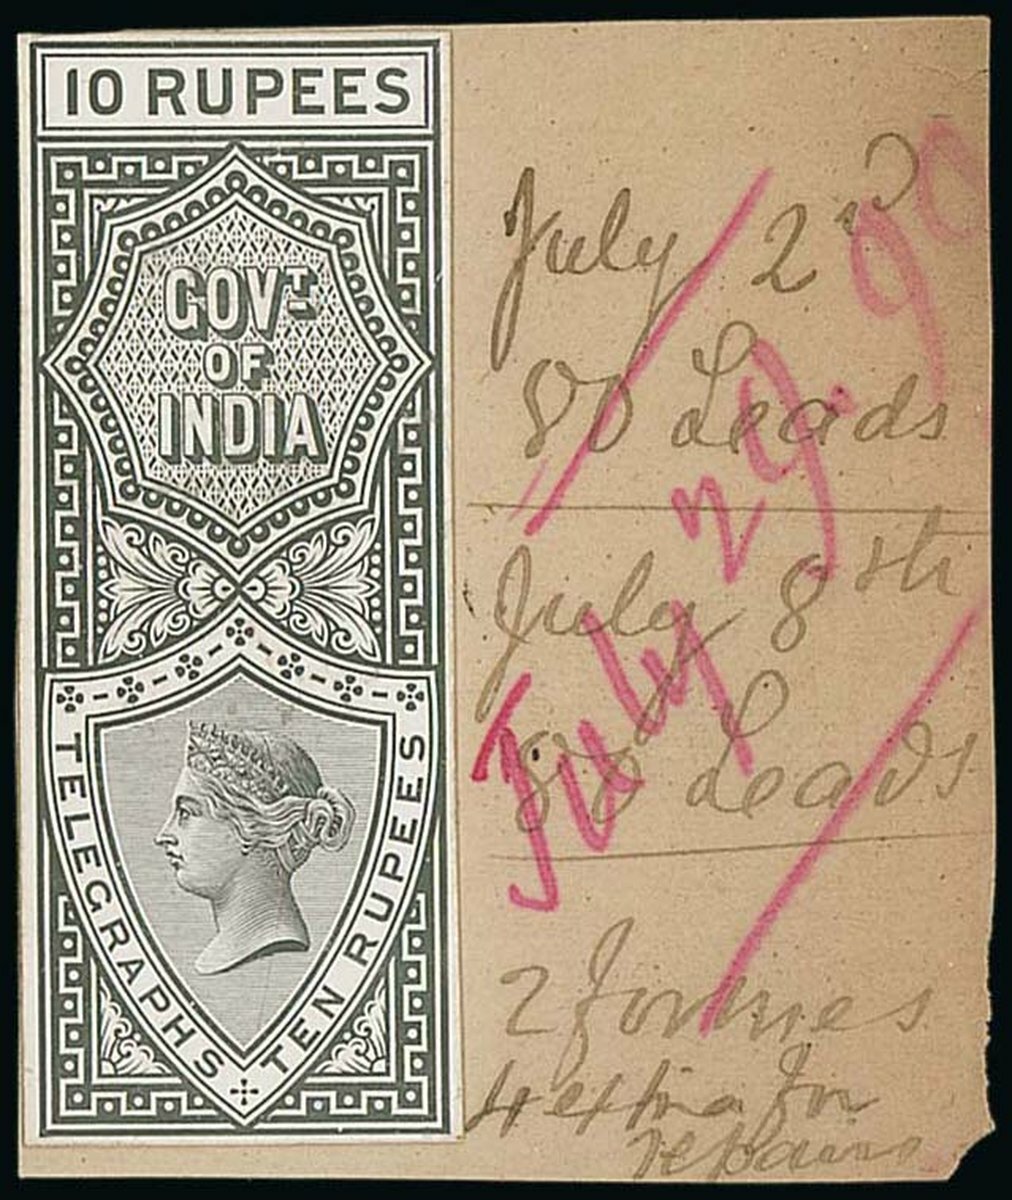 10 RUPEES
GOVT
OF
INDIA
TELEGRAPHS TEN RUPEES
July 2nd
80 Leads
July 8th
80 Leads
2 formes
4 extra for
repairs
July 29. 90